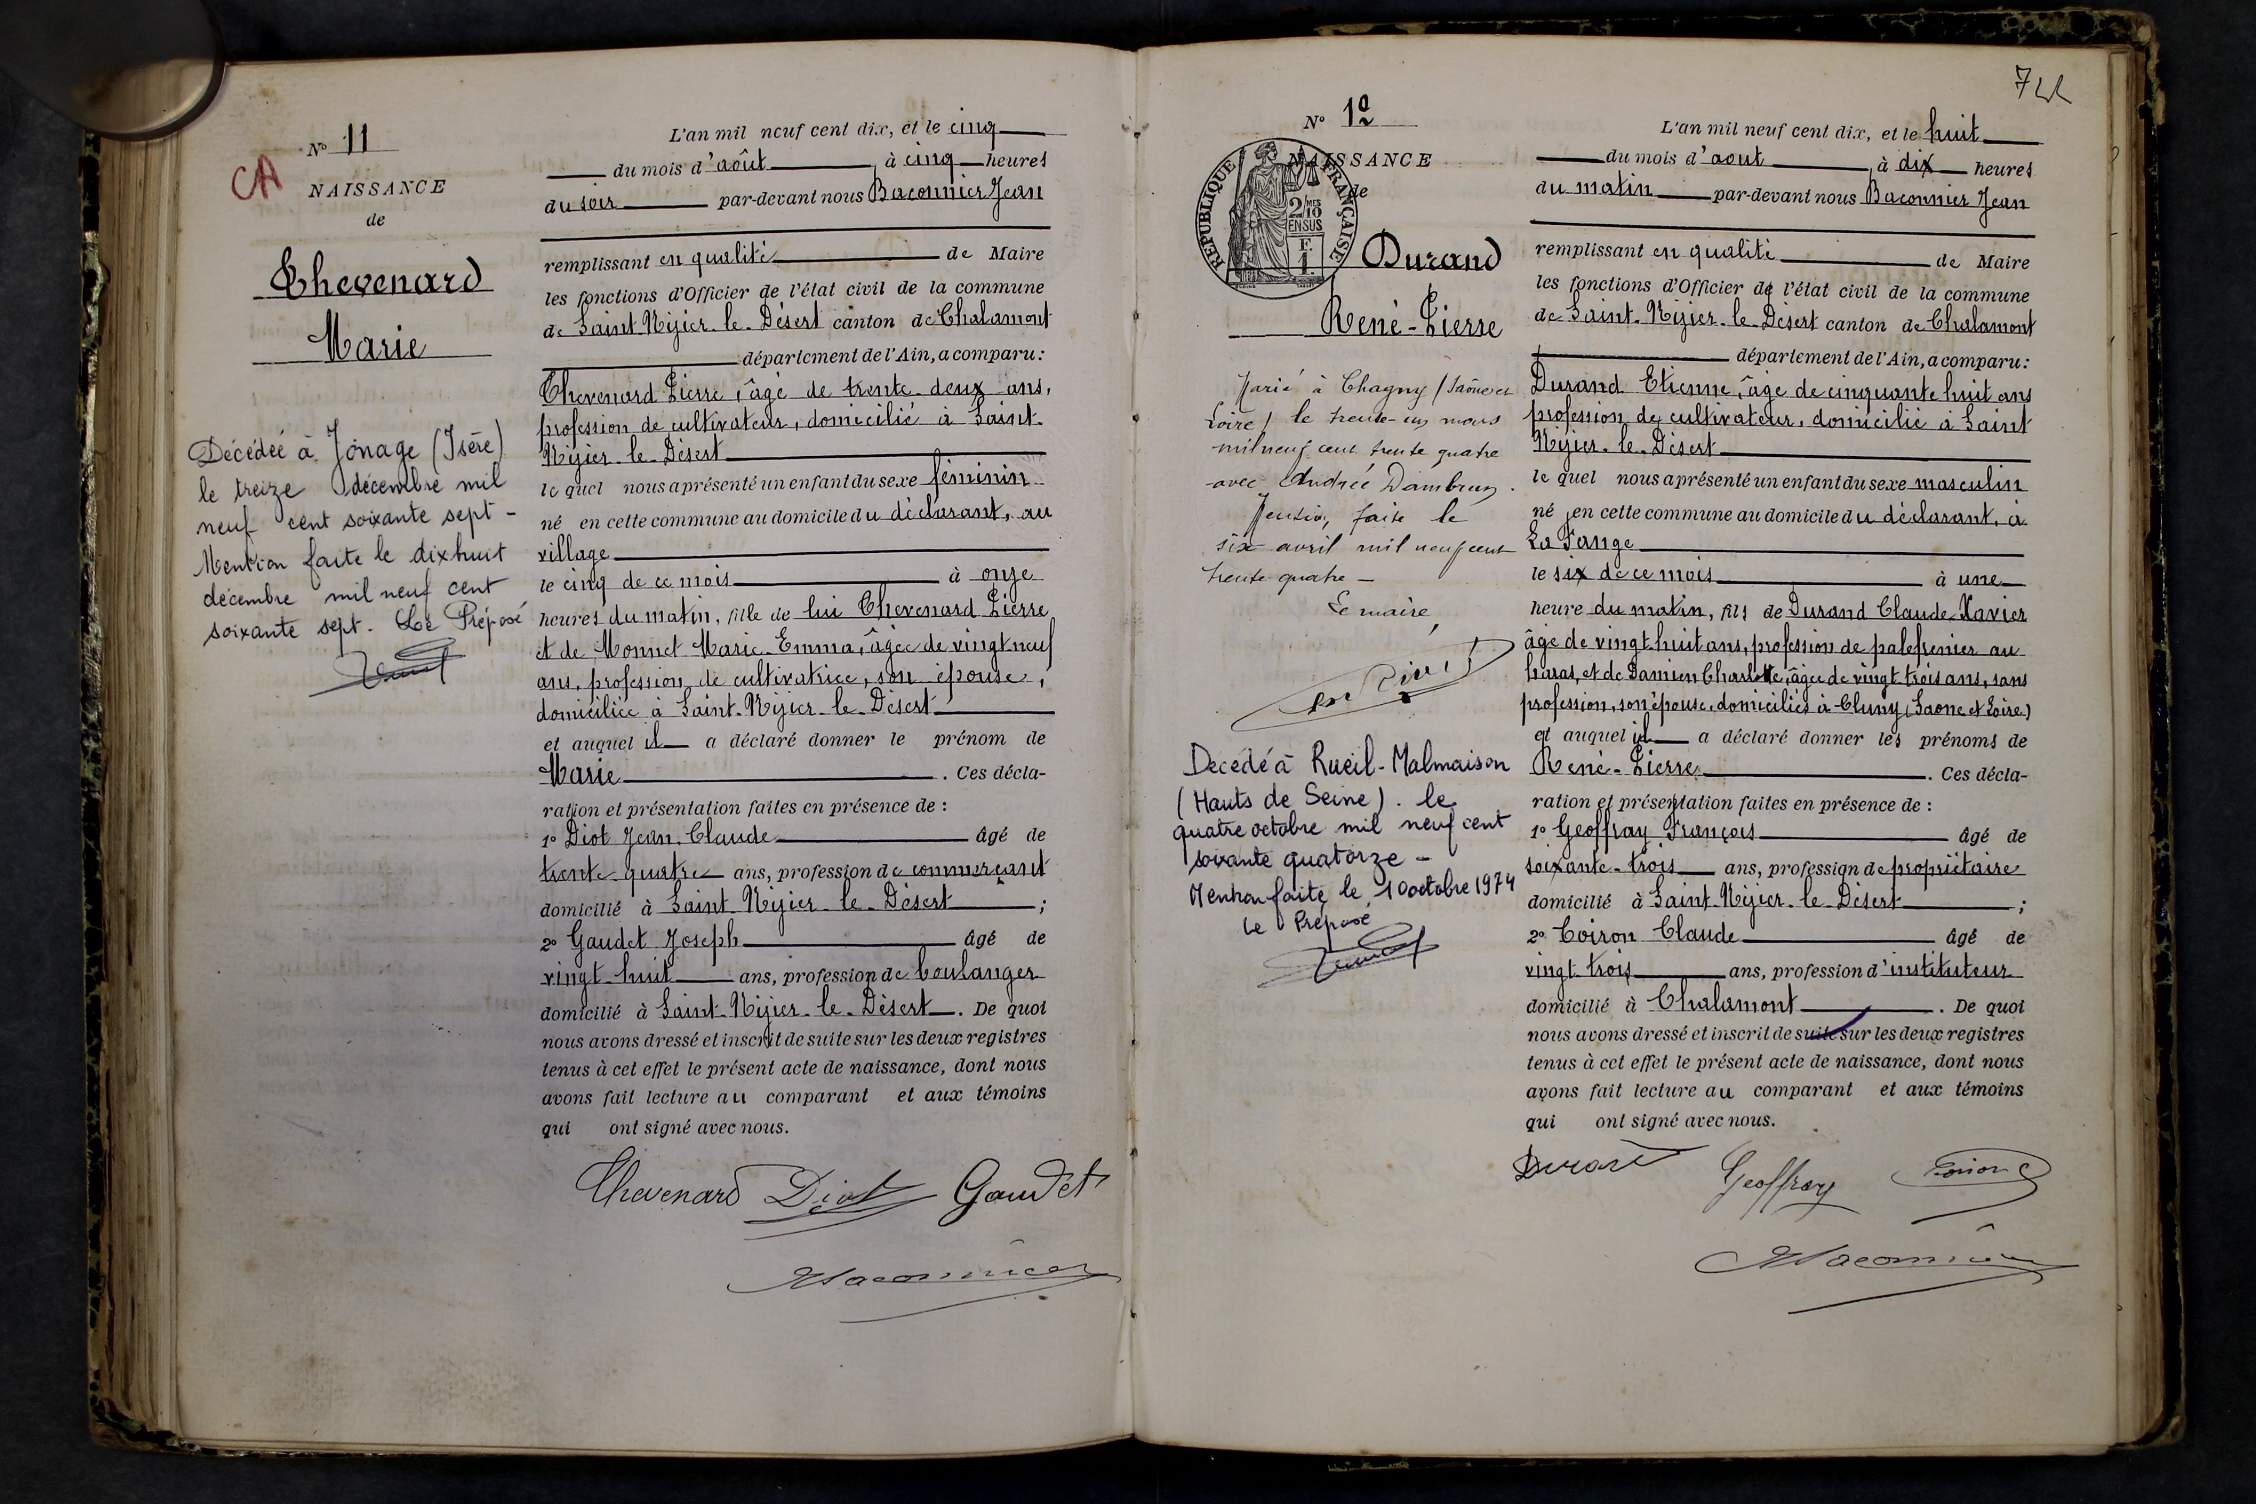 N° 11
CA
NAISSANCE
de
Chevenard
Marie
Décédée à Jonage (Isère)
le treize décembre mil
neuf cent soixante sept -
Mention faite le dix huit
décembre mil neuf cent
soixante sept. Le Préposé
L'an mil neuf cent dix, et le cinq
du mois d'août, à cinq heures
du soir par-devant nous Baconnier Jean
remplissant en qualité de Maire
les fonctions d'Officier de l'état civil de la commune
de Saint-Nizier-le-Désert canton de Chalamont
département de l'Ain, a comparu:
Chevenard Pierre, âgé de trente deux ans,
profession de cultivateur, domicilié à Saint-
Nizier-le-Désert
le quel nous a présenté un enfant du sexe féminin
né en cette commune au domicile du déclarant, au
village
le cinq de ce mois à onze
heures du matin, fille de lui Chevenard Pierre
et de Monnet Marie-Emma, âgée de vingt neuf
ans, profession de cultivatrice, son épouse,
domiciliée à Saint-Nizier-le-Désert
et auquel il a déclaré donner le prénom de
Marie. Ces décla-
ration et présentation faites en présence de :
1° Diot Jean-Claude âgé de
trente-quatre ans, profession de commerçant
domicilié à Saint-Nizier-le-Désert ;
2° Gaudet Joseph âgé de
vingt-huit ans, profession de boulanger
domicilié à Saint-Nizier-le-Désert. De quoi
nous avons dressé et inscrit de suite sur les deux registres
tenus à cet effet le présent acte de naissance, dont nous
avons fait lecture au comparant et aux témoins
qui ont signé avec nous.
Chevenard Diot Gaudet
Baconnier
N° 12
NAISSANCE
de
RÉPUBLIQUE FRANÇAISE
2/10 MES
EN SUS
F.
1.
Durand
René-Pierre
Marié à Chagny (Saône et
Loire) le trente-un mars
mil neuf cent trente quatre
avec Andrée Dambrun.
Mention faite le
six avril mil neuf cent
trente quatre -
Le maire,
Décédé à Rueil-Malmaison
(Hauts de Seine). le
quatre octobre mil neuf cent
soixante quatorze -
Mention faite le, 10 octobre 1974
Le Préposé
L'an mil neuf cent dix, et le huit
du mois d'aout, à dix heures
du matin par-devant nous Baconnier Jean
remplissant en qualité de Maire
les fonctions d'Officier de l'état civil de la commune
de Saint-Nizier-le-Désert canton de Chalamont
département de l'Ain, a comparu:
Durand Etienne, âgé de cinquante huit ans
profession de cultivateur, domicilié à Saint
Nizier-le-Désert
le quel nous a présenté un enfant du sexe masculin
né en cette commune au domicile du déclarant, à
La Fange
le six de ce mois à une
heure du matin, fils de Durand Claude-Xavier
âgé de vingt huit ans, profession de palefrenier au
haras, et de Damien Charlotte, âgée de vingt trois ans, sans
profession, son épouse, domiciliés à Cluny (Saone et Loire)
et auquel il a déclaré donner les prénoms de
René-Pierre. Ces décla-
ration et présentation faites en présence de :
1° Geoffray François âgé de
soixante-trois ans, profession de propriétaire
domicilié à Saint-Nizier-le-Désert ;
2° Coiron Claude âgé de
vingt trois ans, profession d'instituteur
domicilié à Chalamont. De quoi
nous avons dressé et inscrit de suite sur les deux registres
tenus à cet effet le présent acte de naissance, dont nous
avons fait lecture au comparant et aux témoins
qui ont signé avec nous.
Durand Geoffray Coiron
Baconnier